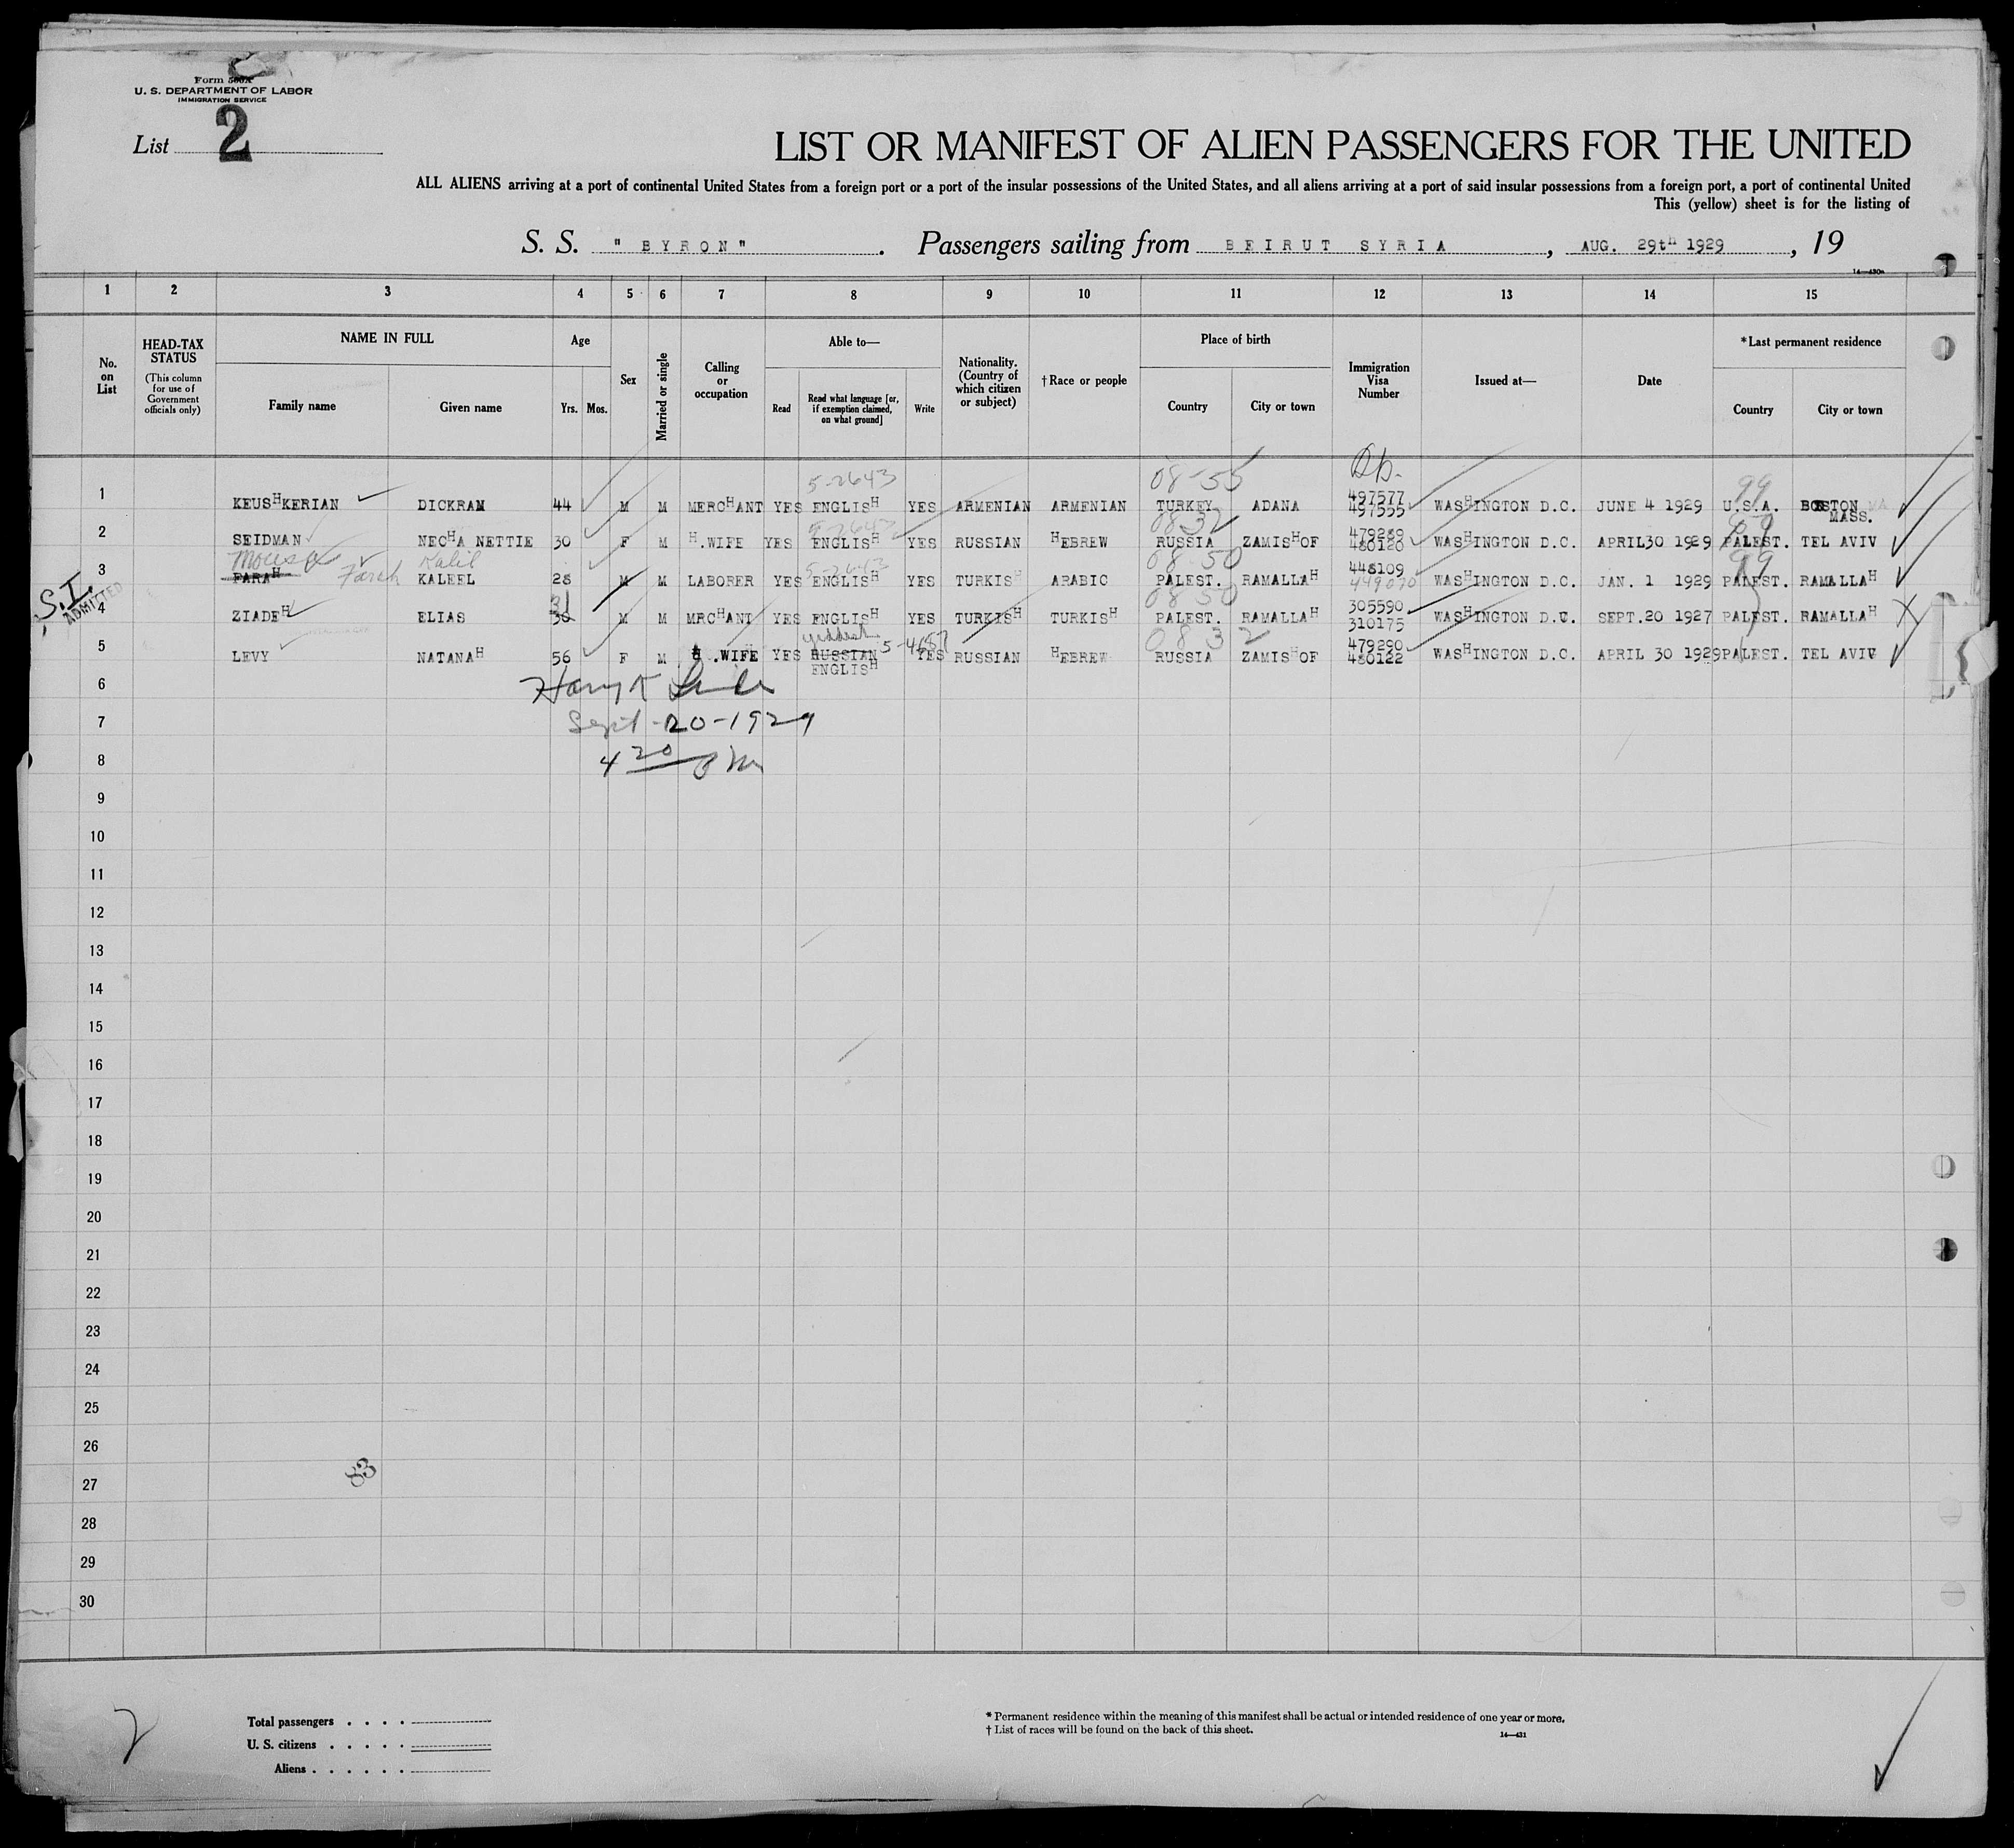 Form 500A
U. S. DEPARTMENT OF LABOR
IMMIGRATION SERVICE
List 2
LIST OR MANIFEST OF ALIEN PASSENGERS FOR THE UNITED
ALL ALIENS arriving at a port of continental United States from a foreign port or a port of the insular possessions of the United States, and all aliens arriving at a port of said insular possessions from a foreign port, a port of continental United
This (yellow) sheet is for the listing of
S. S. "BYRON". Passengers sailing from BEIRUT SYRIA, AUG. 29th 1929, 19
14—430a
1 2 3 4 5 6 7 8 9 10 11 12 13 14 15
No. on List
HEAD-TAX STATUS
(This column for use of Government officials only)
NAME IN FULL
Family name
Given name
Age
Yrs. Mos.
Sex
Married or single
Calling or occupation
Able to—
Read
Read what language [or, if exemption claimed, on what ground]
Write
Nationality. (Country of which citizen or subject)
†Race or people
Place of birth
Country
City or town
Immigration Visa Number
Issued at—
Date
*Last permanent residence
Country
City or town
5-2643 08-55 99
1 KEUSHKERIAN DICKRAM 44 M M MERCHANT YES ENGLISH YES ARMENIAN ARMENIAN TURKEY ADANA 497577 497555 WASHINGTON D.C. JUNE 4 1929 U.S.A. BOSTON MASS.
5-2643 08 32 99
2 SEIDMAN NECHA NETTIE 30 F M H.WIFE YES ENGLISH YES RUSSIAN HEBREW RUSSIA ZAMISHOF 479289 480120 WASHINGTON D.C. APRIL30 1929 PALEST. TEL AVIV
Mousa Farah Kalil 5-2643 08-50 99
3 FARAH KALEEL 28 M M LABORER YES ENGLISH YES TURKISH ARABIC PALEST. RAMALLAH 448109 449070 WASHINGTON D.C. JAN. 1 1929 PALEST. RAMALLAH
S.I. ADMITTED
31 08 50
4 ZIADEH ELIAS 30 M M MRCHANT YES ENGLISH YES TURKISH TURKISH PALEST. RAMALLAH 305590 310175 WASHINGTON D.C. SEPT.20 1927 PALEST. RAMALLAH
Yiddish 5-4657 08 32
5 LEVY NATANAH 56 F M H.WIFE YES RUSSIAN ENGLISH YES RUSSIAN HEBREW RUSSIA ZAMISHOF 479290 480122 WASHINGTON D.C. APRIL 30 1929 PALEST. TEL AVIV
6 Harry K
7 Sept-20-1929
8 4 20 PM
9
10
11
12
13
14
15
16
17
18
19
20
21
22
23
24
25
26
83
27
28
29
30
2
Total passengers . . . .
U. S. citizens . . . . .
Aliens . . . . . .
* Permanent residence within the meaning of this manifest shall be actual or intended residence of one year or more.
† List of races will be found on the back of this sheet.
14—431